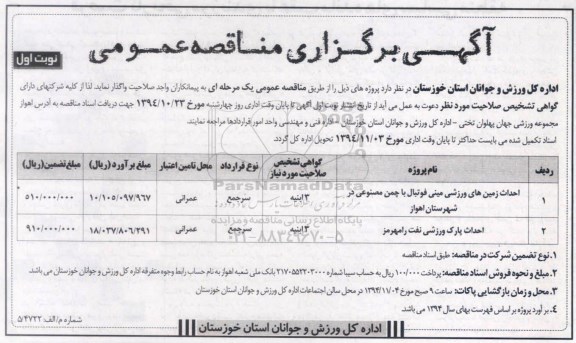 آگهی برگزاری مناقصه عمومی
نوبت اول
اداره کل ورزش و جوانان استان خوزستان در نظر دارد پروژه های ذیل را از طریق مناقصه عمومی یک مرحله ای به پیمانکاران واجد صلاحیت واگذار نماید. لذا از کلیه شرکتهای دارای
گواهی تشخیص صلاحیت مورد نظر دعوت به عمل می آید از تاریخ انتشار نوبت اول آگهی تا پایان وقت اداری روز چهارشنبه مورخ ۱۳۹۴/۱۰/۲۳ جهت دریافت اسناد مناقصه به آدرس اهواز
مجموعه ورزشی جهان پهلوان تختی - اداره کل ورزش و جوانان استان خوزستان - اداره فنی و مهندسی واحد امور قراردادها مراجعه نمایند.
اسناد تکمیل شده می بایست حداکثر تا پایان وقت اداری مورخ ۱۳۹۴/۱۱/۰۳ تحویل اداره کل گردد.
ردیف نام پروژه گواهی تشخیص صلاحیت مورد نیاز نوع قرارداد محل تامین اعتبار مبلغ برآورد (ریال) مبلغ تضمین (ریال)
۱ احداث زمین های ورزشی مینی فوتبال با چمن مصنوعی در شهرستان اهواز ۳ ابنیه سرجمع عمرانی ۱۰/۱۰۵/۰۹۷/۹۶۷ ۵۱۰/۰۰۰/۰۰۰
۲ احداث پارک ورزشی نفت رامهرمز ۳ ابنیه سرجمع عمرانی ۱۸/۰۳۷/۸۰۶/۲۹۱ ۹۱۰/۰۰۰/۰۰۰
ParsNamadData
پایگاه اطلاع رسانی مناقصه و مزایده
۰۲۱-۸۸۳۴۹۶۷۰-۵
۱. نوع تضمین شرکت در مناقصه: طبق اسناد مناقصه
۲. مبلغ و نحوه فروش اسناد مناقصه: پرداخت ۱۰۰/۰۰۰ ریال به حساب سیبا شماره ۲۱۷۰۵۵۲۲۰۳۰۰۰ بانک ملی شعبه اهواز به نام حساب رابط وجوه متفرقه اداره کل ورزش و جوانان خوزستان می باشد.
۳. محل و زمان بازگشایی پاکات: ساعت ۹ صبح مورخ ۱۳۹۴/۱۱/۰۴ در محل سالن اجتماعات اداره کل ورزش و جوانان استان خوزستان
۴. برآورد پروژه بر اساس فهرست بهای سال ۱۳۹۴ می باشد.
شماره م/الف ۵۴۷۲۲
اداره کل ورزش و جوانان استان خوزستان